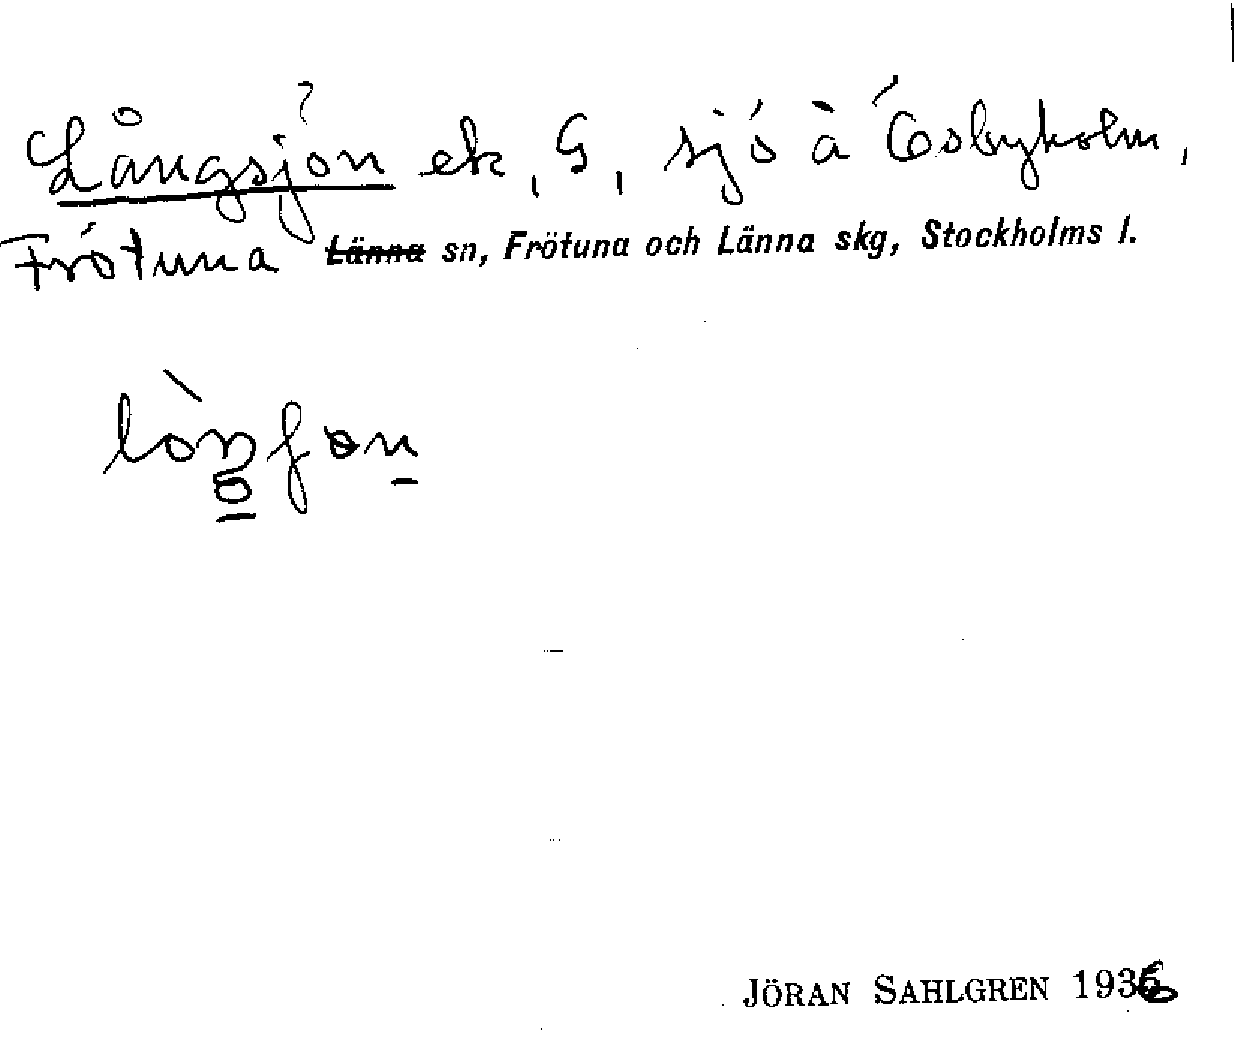 Långsjön ek, G, sjö å Ösbyholm,
Frötuna Länna sn, Frötuna och Länna skg, Stockholms l.
JÖRAN SAHLGREN 1936